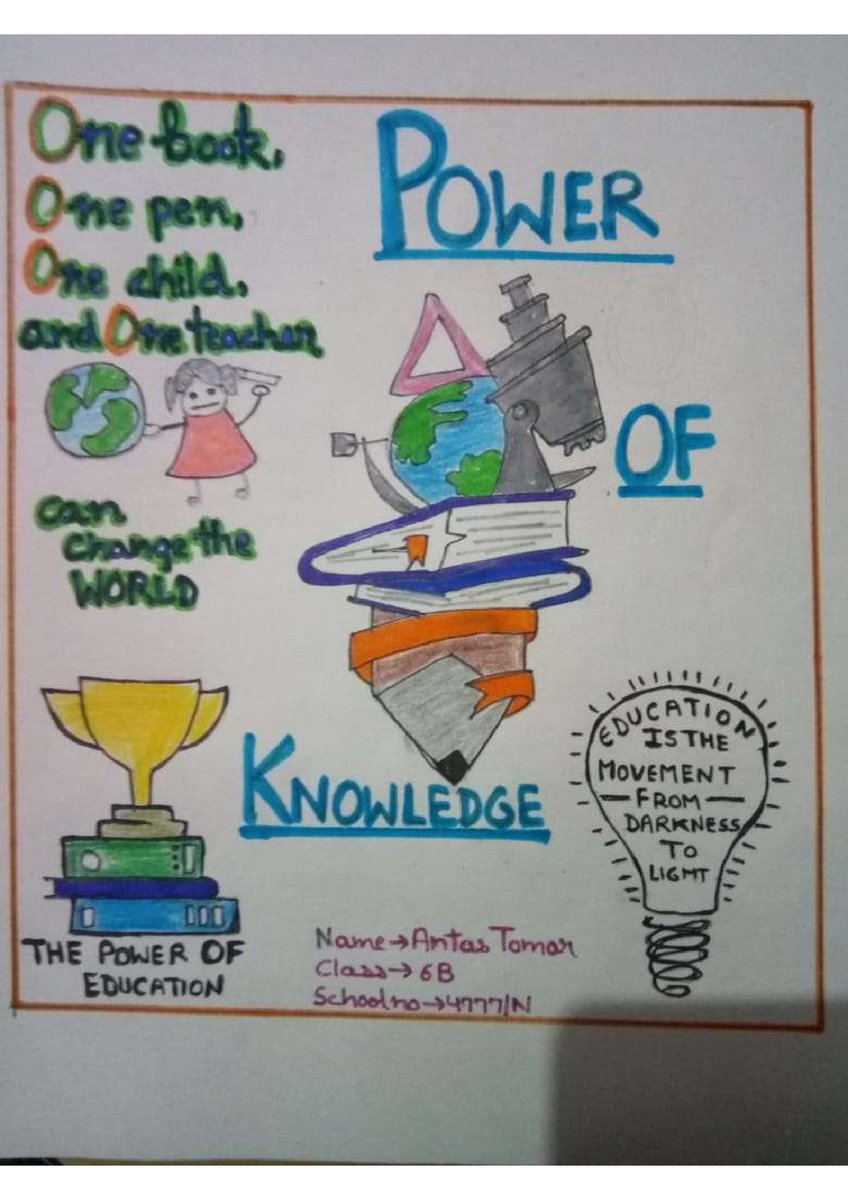 One book,
One pen,
One child,
and One teacher
can
change the
WORLD
POWER
OF
KNOWLEDGE
THE POWER OF
EDUCATION
EDUCATION
IS THE
MOVEMENT
FROM
DARKNESS
TO
LIGHT
Name→Antas Tomar
Class→6B
School no→4777/N